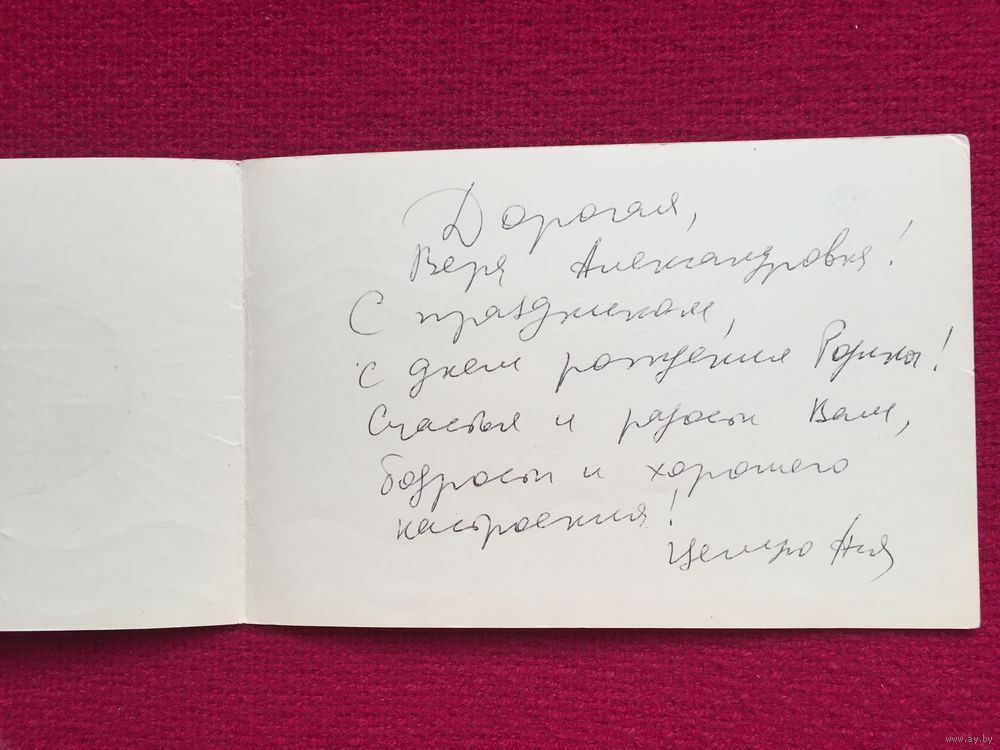 Дорогая,
Вера Александровна!
С праздником,
с днем рождения Родины!
Счастья и радости Вам,
бодрости и хорошего
настроения!
Целую Аня
www.ay.by